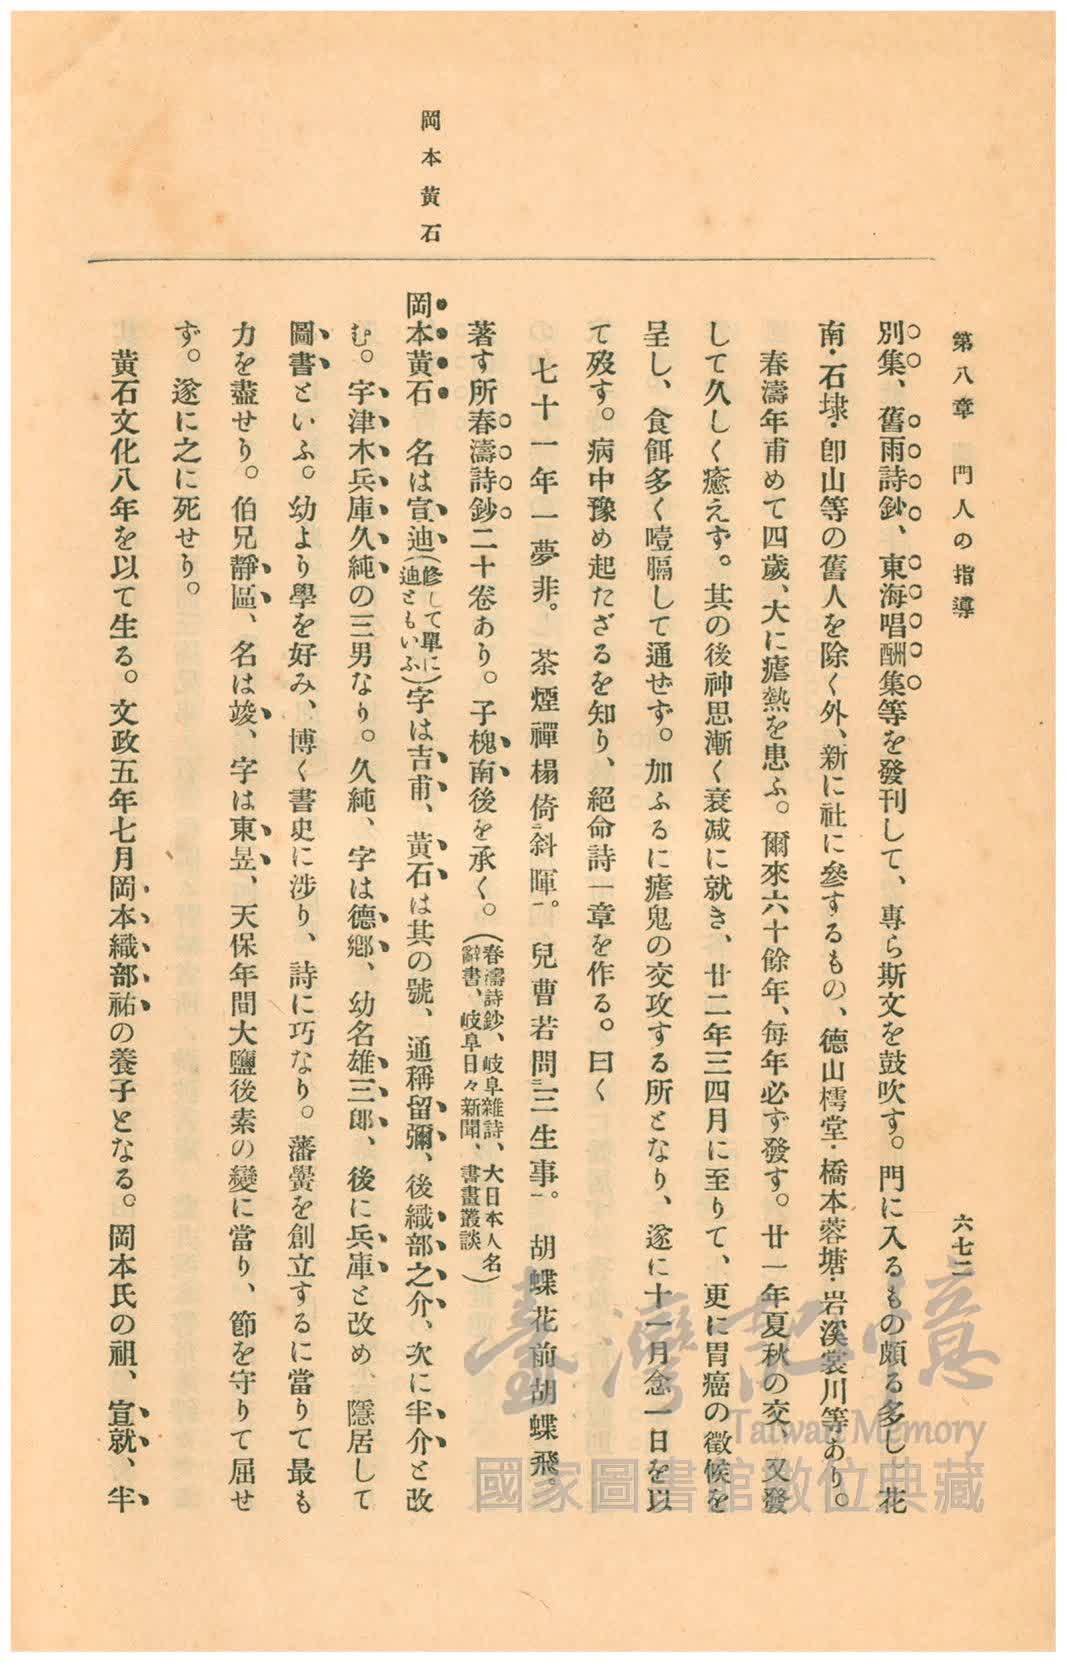 第八章　門人の指導　六七二
別集、舊雨詩鈔、東海唱酬集等を發刊して、專ら斯文を鼓吹す。門に入るもの頗る多し。花
南・石埭・卽山等の舊人を除く外、新に社に參するもの、德山樗堂・橋本蓉塘・岩溪裳川等あり。
春濤年甫めて四歲、大に瘧熱を患ふ。爾來六十餘年、每年必ず發す。廿一年夏秋の交、又發
して久しく癒えず。其の後神思漸く衰減に就き、廿二年三四月に至りて、更に胃癌の徵候を
呈し、食餌多く噎膈して通せず。加ふるに瘧鬼の交攻する所となり、遂に十一月念一日を以
て歿す。病中豫め起たざるを知り、絕命詩一章を作る。曰く
七十一年一夢非。茶煙禪榻倚二斜暉一。兒曹若問二三生事一。胡蝶花前胡蝶飛。
著す所春濤詩鈔二十卷あり。子槐南後を承く。（春濤詩鈔、岐阜雜詩、大日本人名
辭書、岐阜日々新聞、書畫叢談）
岡本黃石
岡本黃石　名は宣迪（修して單に
迪ともいふ）字は吉甫、黃石は其の號、通稱留彌、後織部之介、次に半介と改
む。宇津木兵庫久純の三男なり。久純、字は德鄕、幼名雄三郎、後に兵庫と改め、隱居して
圖書といふ。幼より學を好み、博く書史に涉り、詩に巧なり。藩黌を創立するに當りて最も
力を盡せり。伯兄靜區、名は竣、字は東昱、天保年間大鹽後素の變に當り、節を守りて屈せ
ず。遂に之に死せり。
黃石文化八年を以て生る。文政五年七月岡本織部祐の養子となる。岡本氏の祖、宣就、半
臺灣記憶
Taiwan Memory
國家圖書館數位典藏